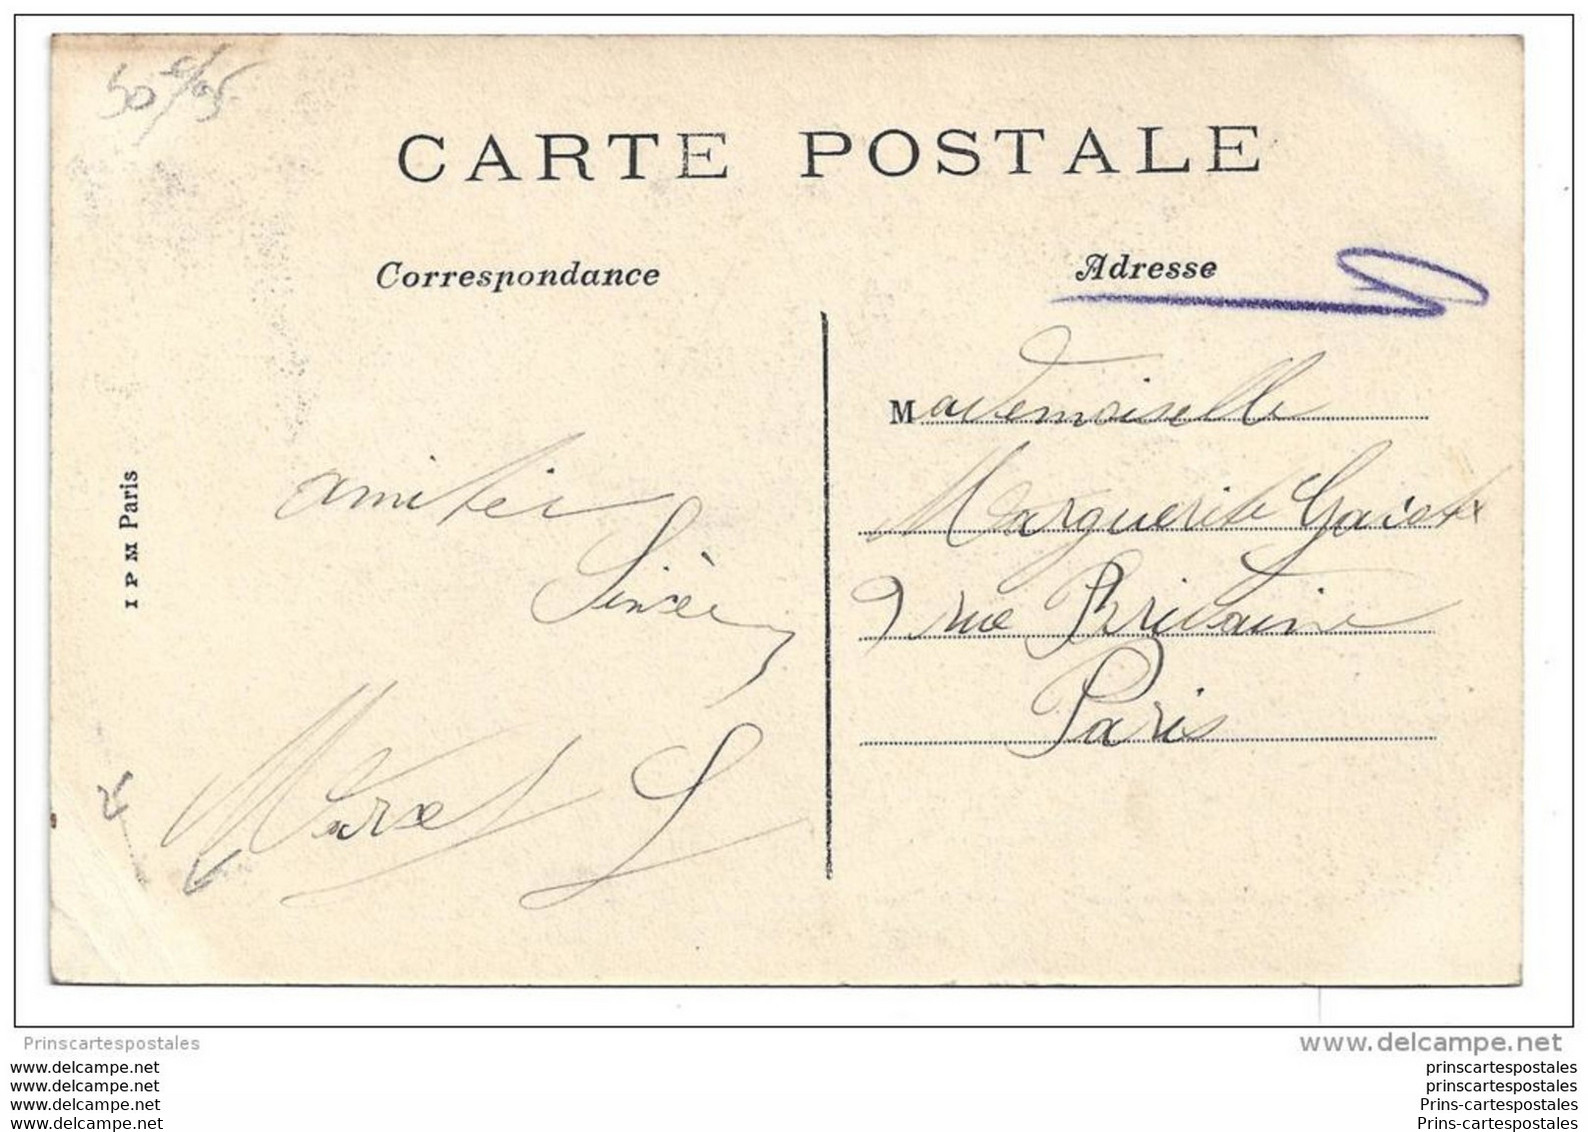 CARTE POSTALE
Correspondance
Adresse
Mademoiselle
Marguerite
9 rue Privaine
Paris
amitiés
Sincères
Marcel L
I P M Paris
Prinscartespostales
www.delcampe.net
www.delcampe.net
prinscartespostales
www.delcampe.net
prinscartespostales
www.delcampe.net
Prins-cartespostales
www.delcampe.net
Prins-cartespostales